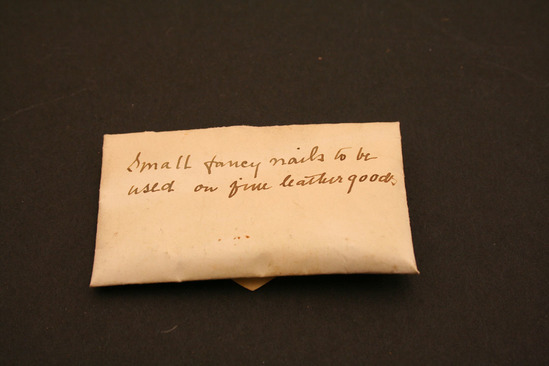 Small fancy nails to be
used on fine leather goods.